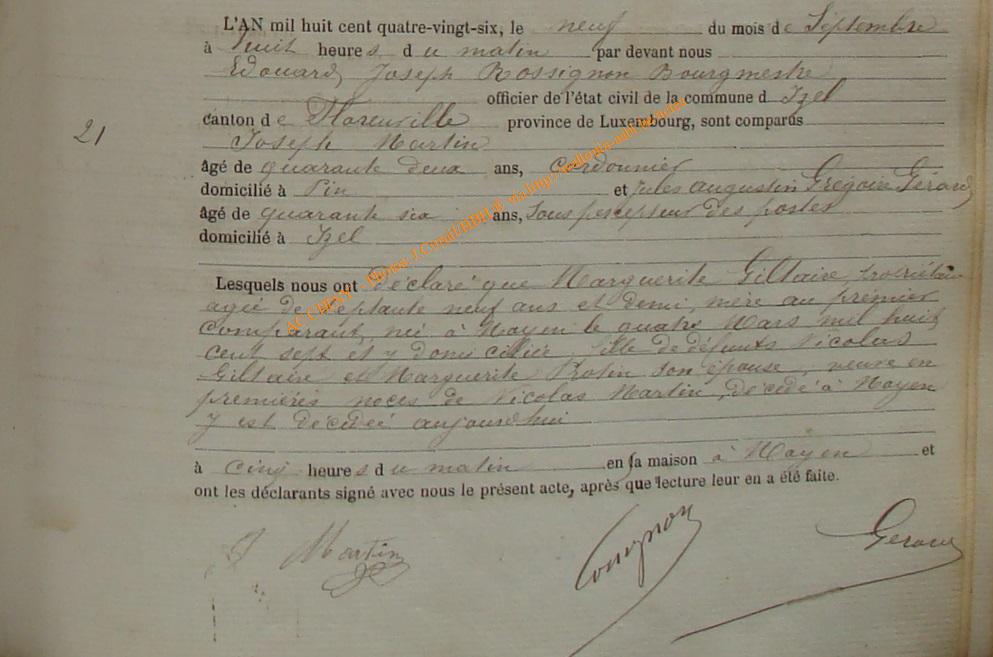 L'AN mil huit cent quatre-vingt-six, le neuf du mois de Septembre
à huit heures du matin par devant nous
Edouard Joseph Rossignon Bourgmestre
officier de l'état civil de la commune d Izel
21
canton de Florenville province de Luxembourg, sont comparus
Joseph Martin
âgé de quarante deux ans, Cordonnier
domicilié à Pin et Jules Augustin Grégoire Gérard
âgé de quarante six ans, Sous percepteur des postes
domicilié à Izel
Lesquels nous ont déclaré que Marguerite Giltaire, propriétaire
agée de septante neuf ans et demi, mère au premier
comparant, née à Moyen le quatre Mars mil huit
cent sept et y domiciliée, fille de défunts Nicolas
Giltaire et Marguerite son épouse, veuve en
premières noces de Nicolas Martin, décédé à Moyen
y est décédée aujourd'hui
à cinq heures du matin en sa maison à Moyen et
ont les déclarants signé avec nous le présent acte, après que lecture leur en a été faite.
J Martin Rossignon Gerard